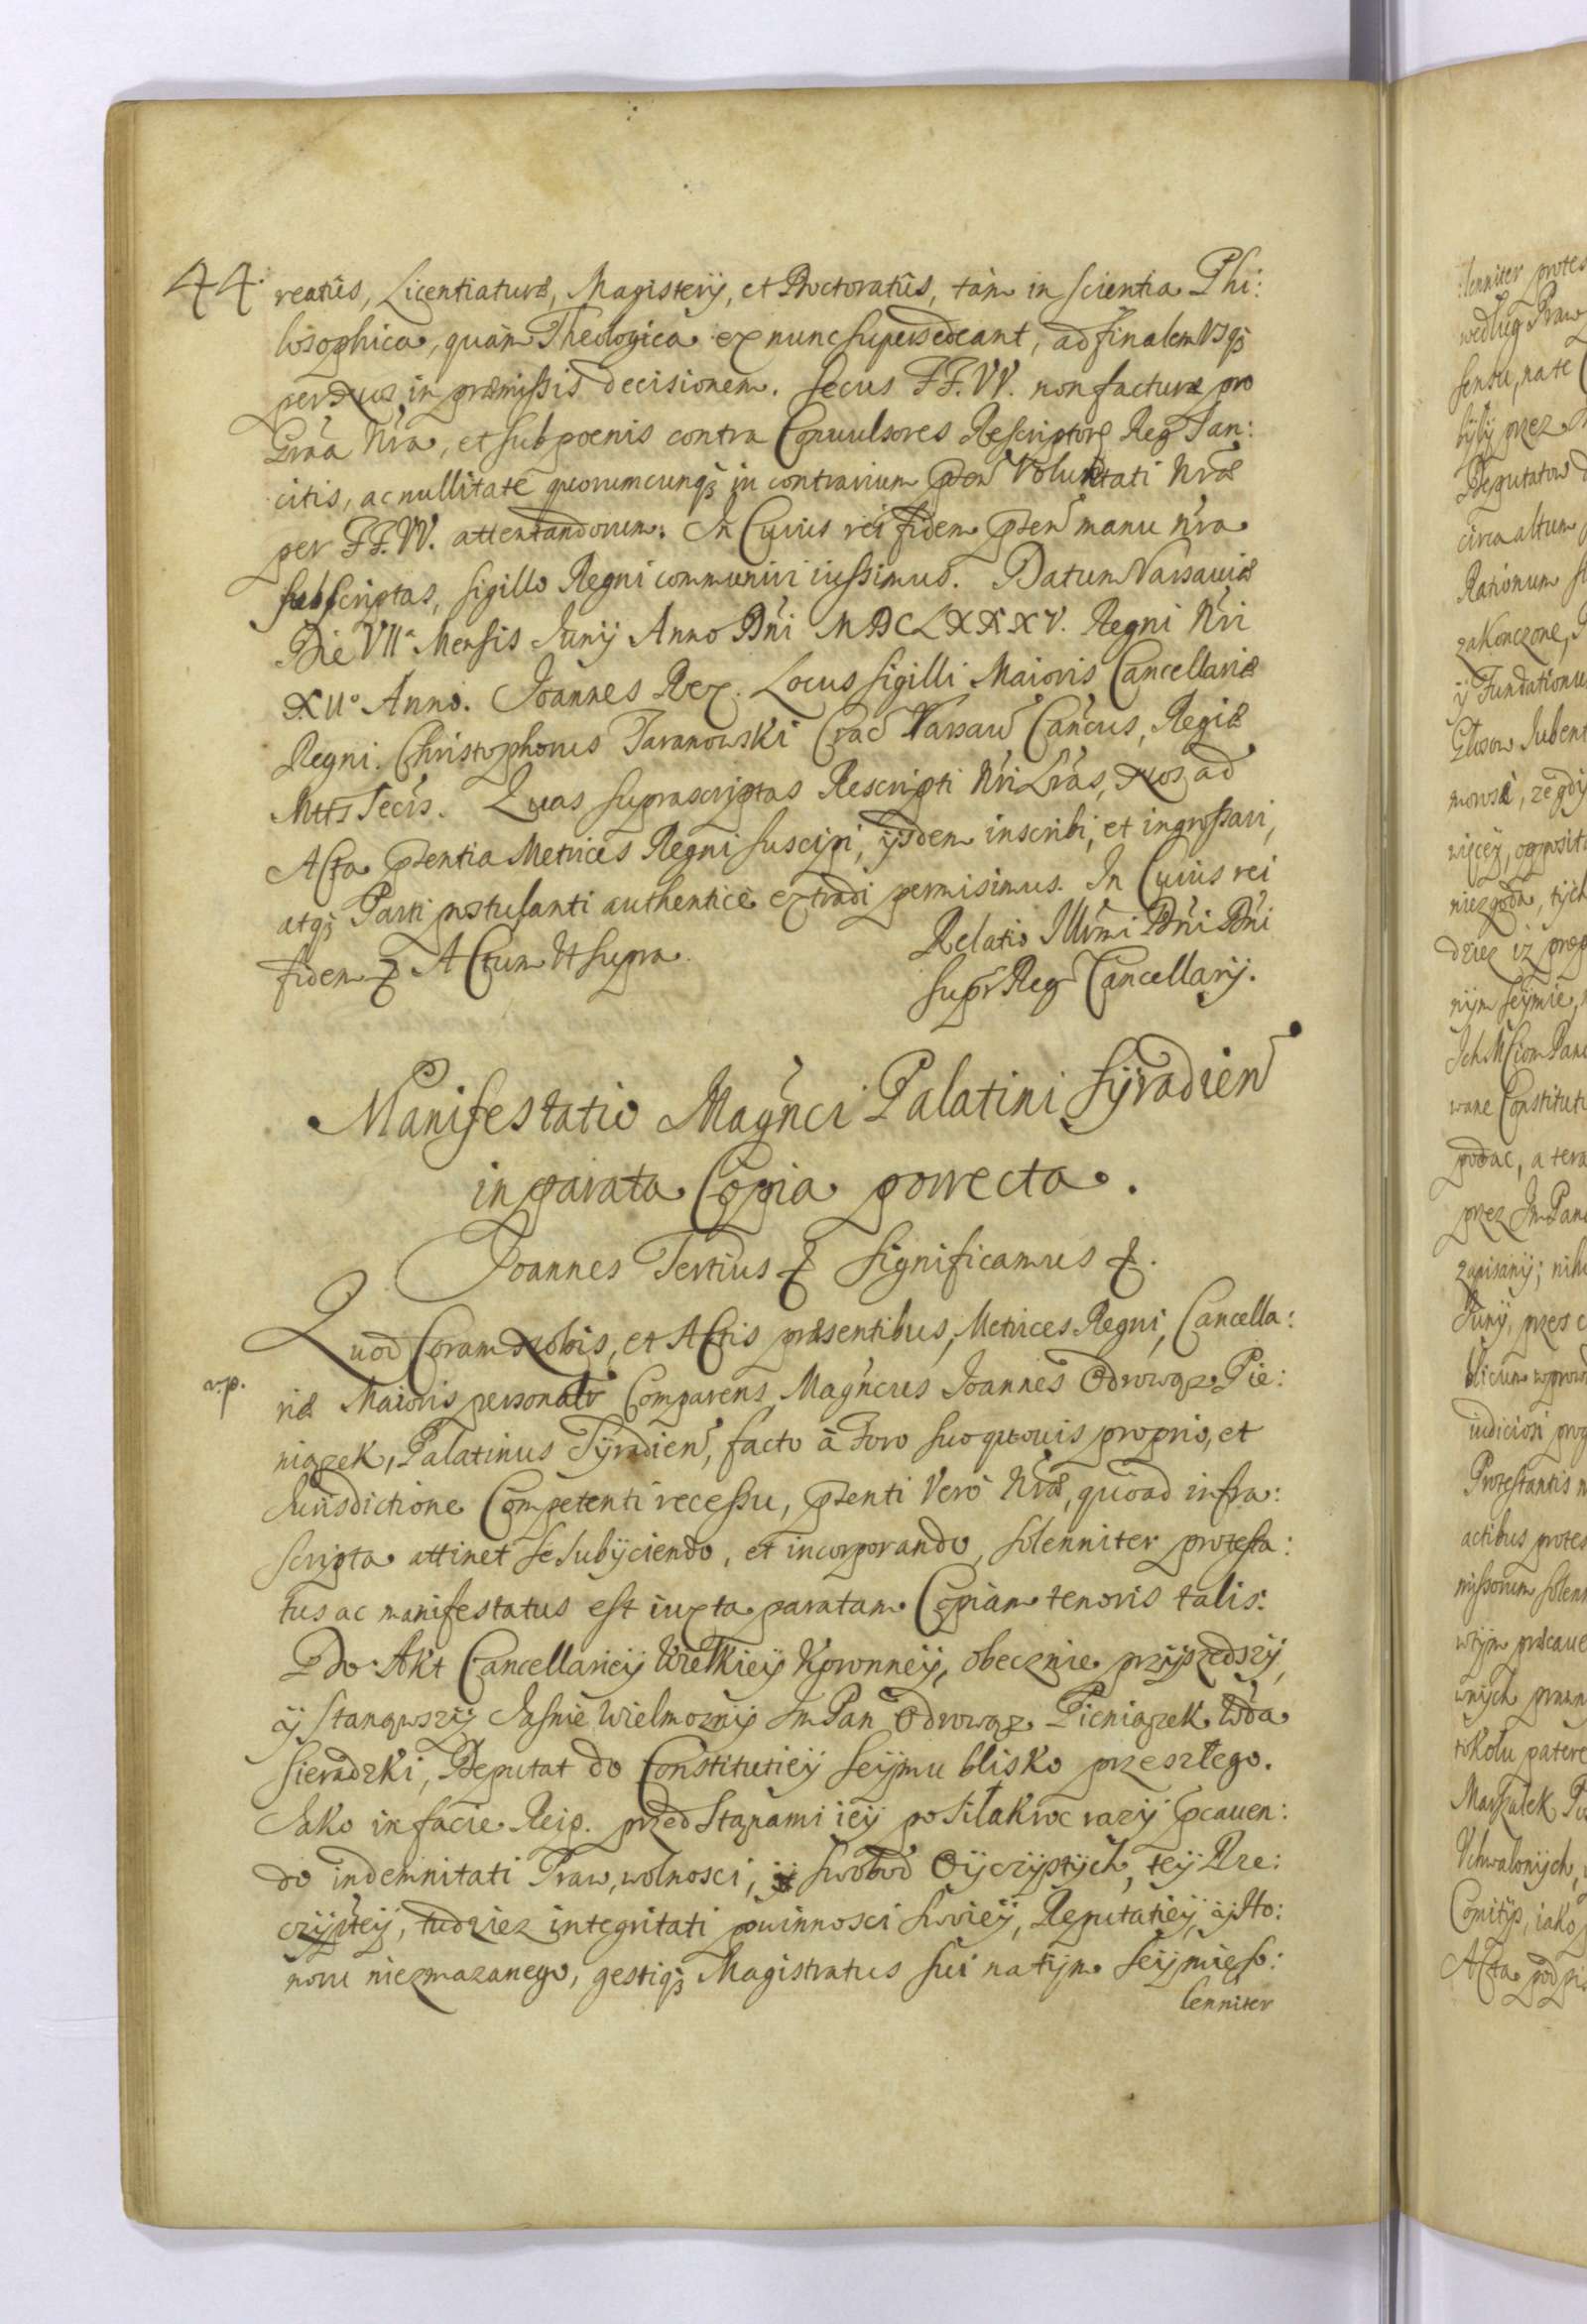 44. reatûs, Licentiaturæ, Magisterij, et Doctoratûs, tàm in scientia Phi:
losophica, quàm Theologica ex nunc supersedeant, ad finalem Vsq3
per Nos in præmissis decisionem. Secus FF. VV. non facturæ pro
Grãa Nrã, et sub poenis contra Convulsores Rescriptorũ Reg San:
citis, ac nullitate quorumcunq3 in contrarium pñ Voluntati Nræ
per FF. VV. attentandorum. In Cuius rei fidem pñ manu nrã
subscriptas, sigillo Regni communiri iussimus. Datum Varsaviæ
Die VIIa Mensis Junij Anno Dñi MDCLXXXV. Regni Nri
XIIo Anno. Joannes Rex. Locus sigilli Maioris Cancellariæ
Regni. Christophorus Taranowski Crac Varsav Cancus, Regiæ
Mttis Secrs. Quas suprascriptas Rescripti Nri Lras, Nos ad
Acta pñtia Metrices Regni suscipi, ijsdem inscribi, et ingrossari,
atq3 Parti postulanti authenticè extradi permisimus. In Cuius rei
fidem & Actum Ut supra.
Relatio Illrmi Dñi Dñi
Supr Reg Cancellarij.
Manifestatio Magnci Palatini Syradien
in parata Copia porrecta.
Joannes Tertius & significamus &.
Quod Coram Nobis, et Actis præsentibus, Metrices Regni, Cancella:
riæ Maioris personalr Comparens Magncus Joannes Odrowąz Pie:
niązek, Palatinus Syradien, facto à Foro suo quovis proprio, et
Jurisdictione Competenti recessu, pñti Verò Nræ, quòad infra:
scripta attinet se subijciendo, et incorporando, solenniter protesta:
tus ac manifestatus est iuxta paratam Copiam tenoris talis.
Do Akt Cancellarieÿ Wielkieÿ Koronneÿ, obecznie przÿszedszÿ,
ÿ stanąwszÿ Jasnie Wielmoznÿ Jm Pan Odrowąz Pieniązek Wda
Sieradzki, Deputat do Constitutieÿ Seÿmu blisko przeszłego.
Jako in facie Reip. przed Stanami ieÿ po kilakroc razÿ pcaven:
do indemnitati Praw, wolnosci, ÿ swobod Oÿczÿstÿch, teÿ Rze:
czÿpteÿ, tudziez integritati powinnosci swoieÿ, Reputatieÿ, ÿ Ho:
noru niezmazanego, gestiq3 Magistratus sui na tÿm Seÿmie so:
lenniter